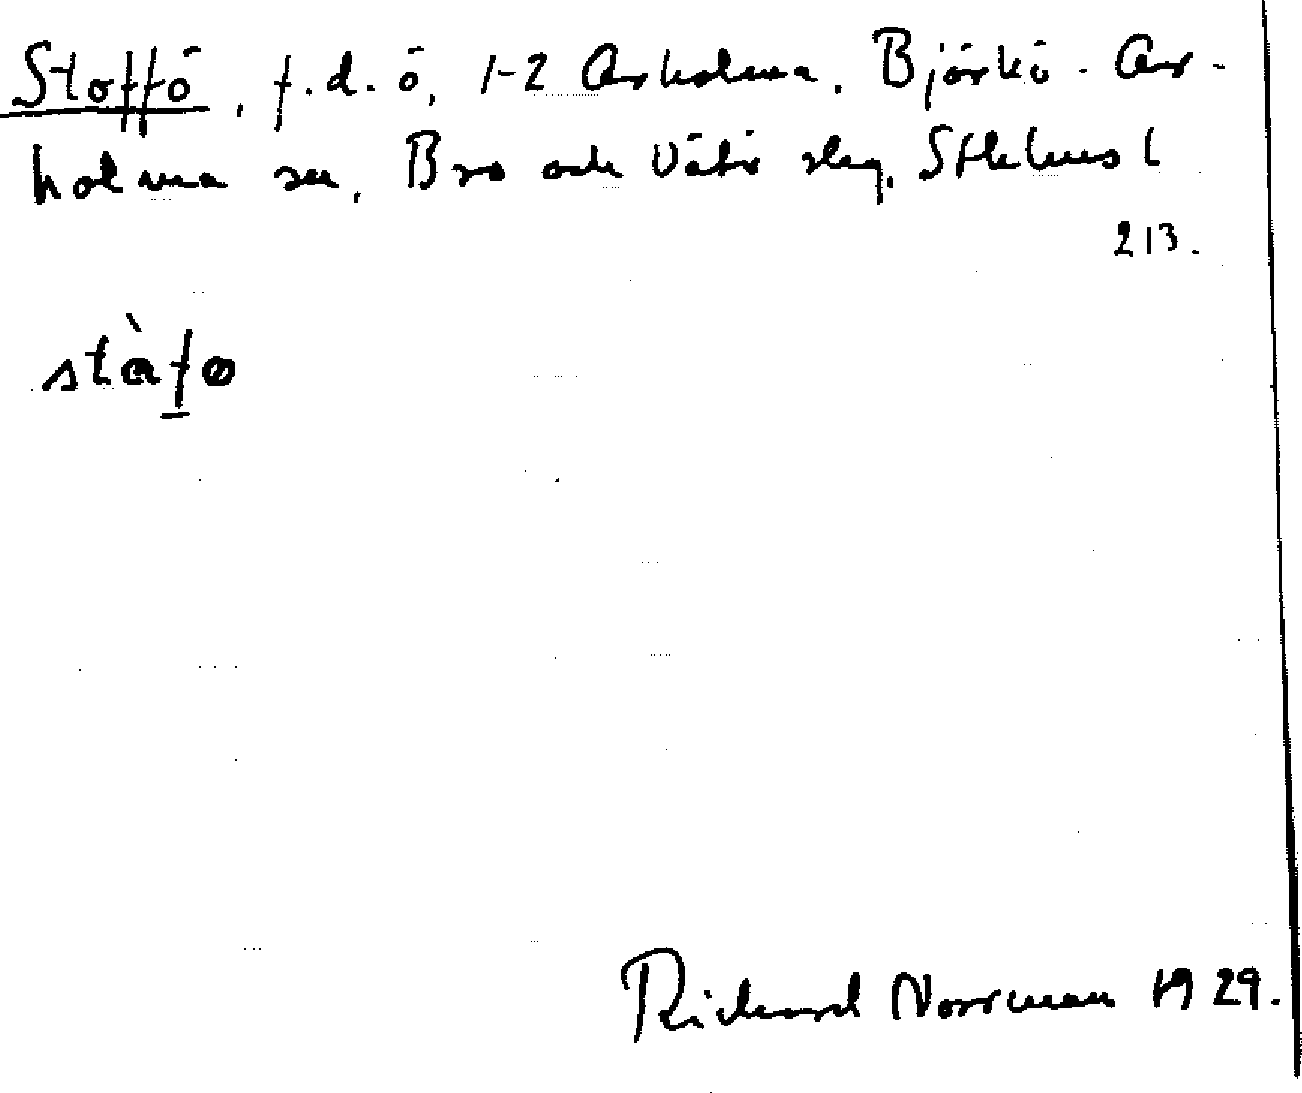 Stoffö, f.d. ö, 1-2 Arholma, Björkö-Ar-
holma sn, Bro och Vätö slg, Sthlms l
213.
stàfø
Richard Norrman 1929.